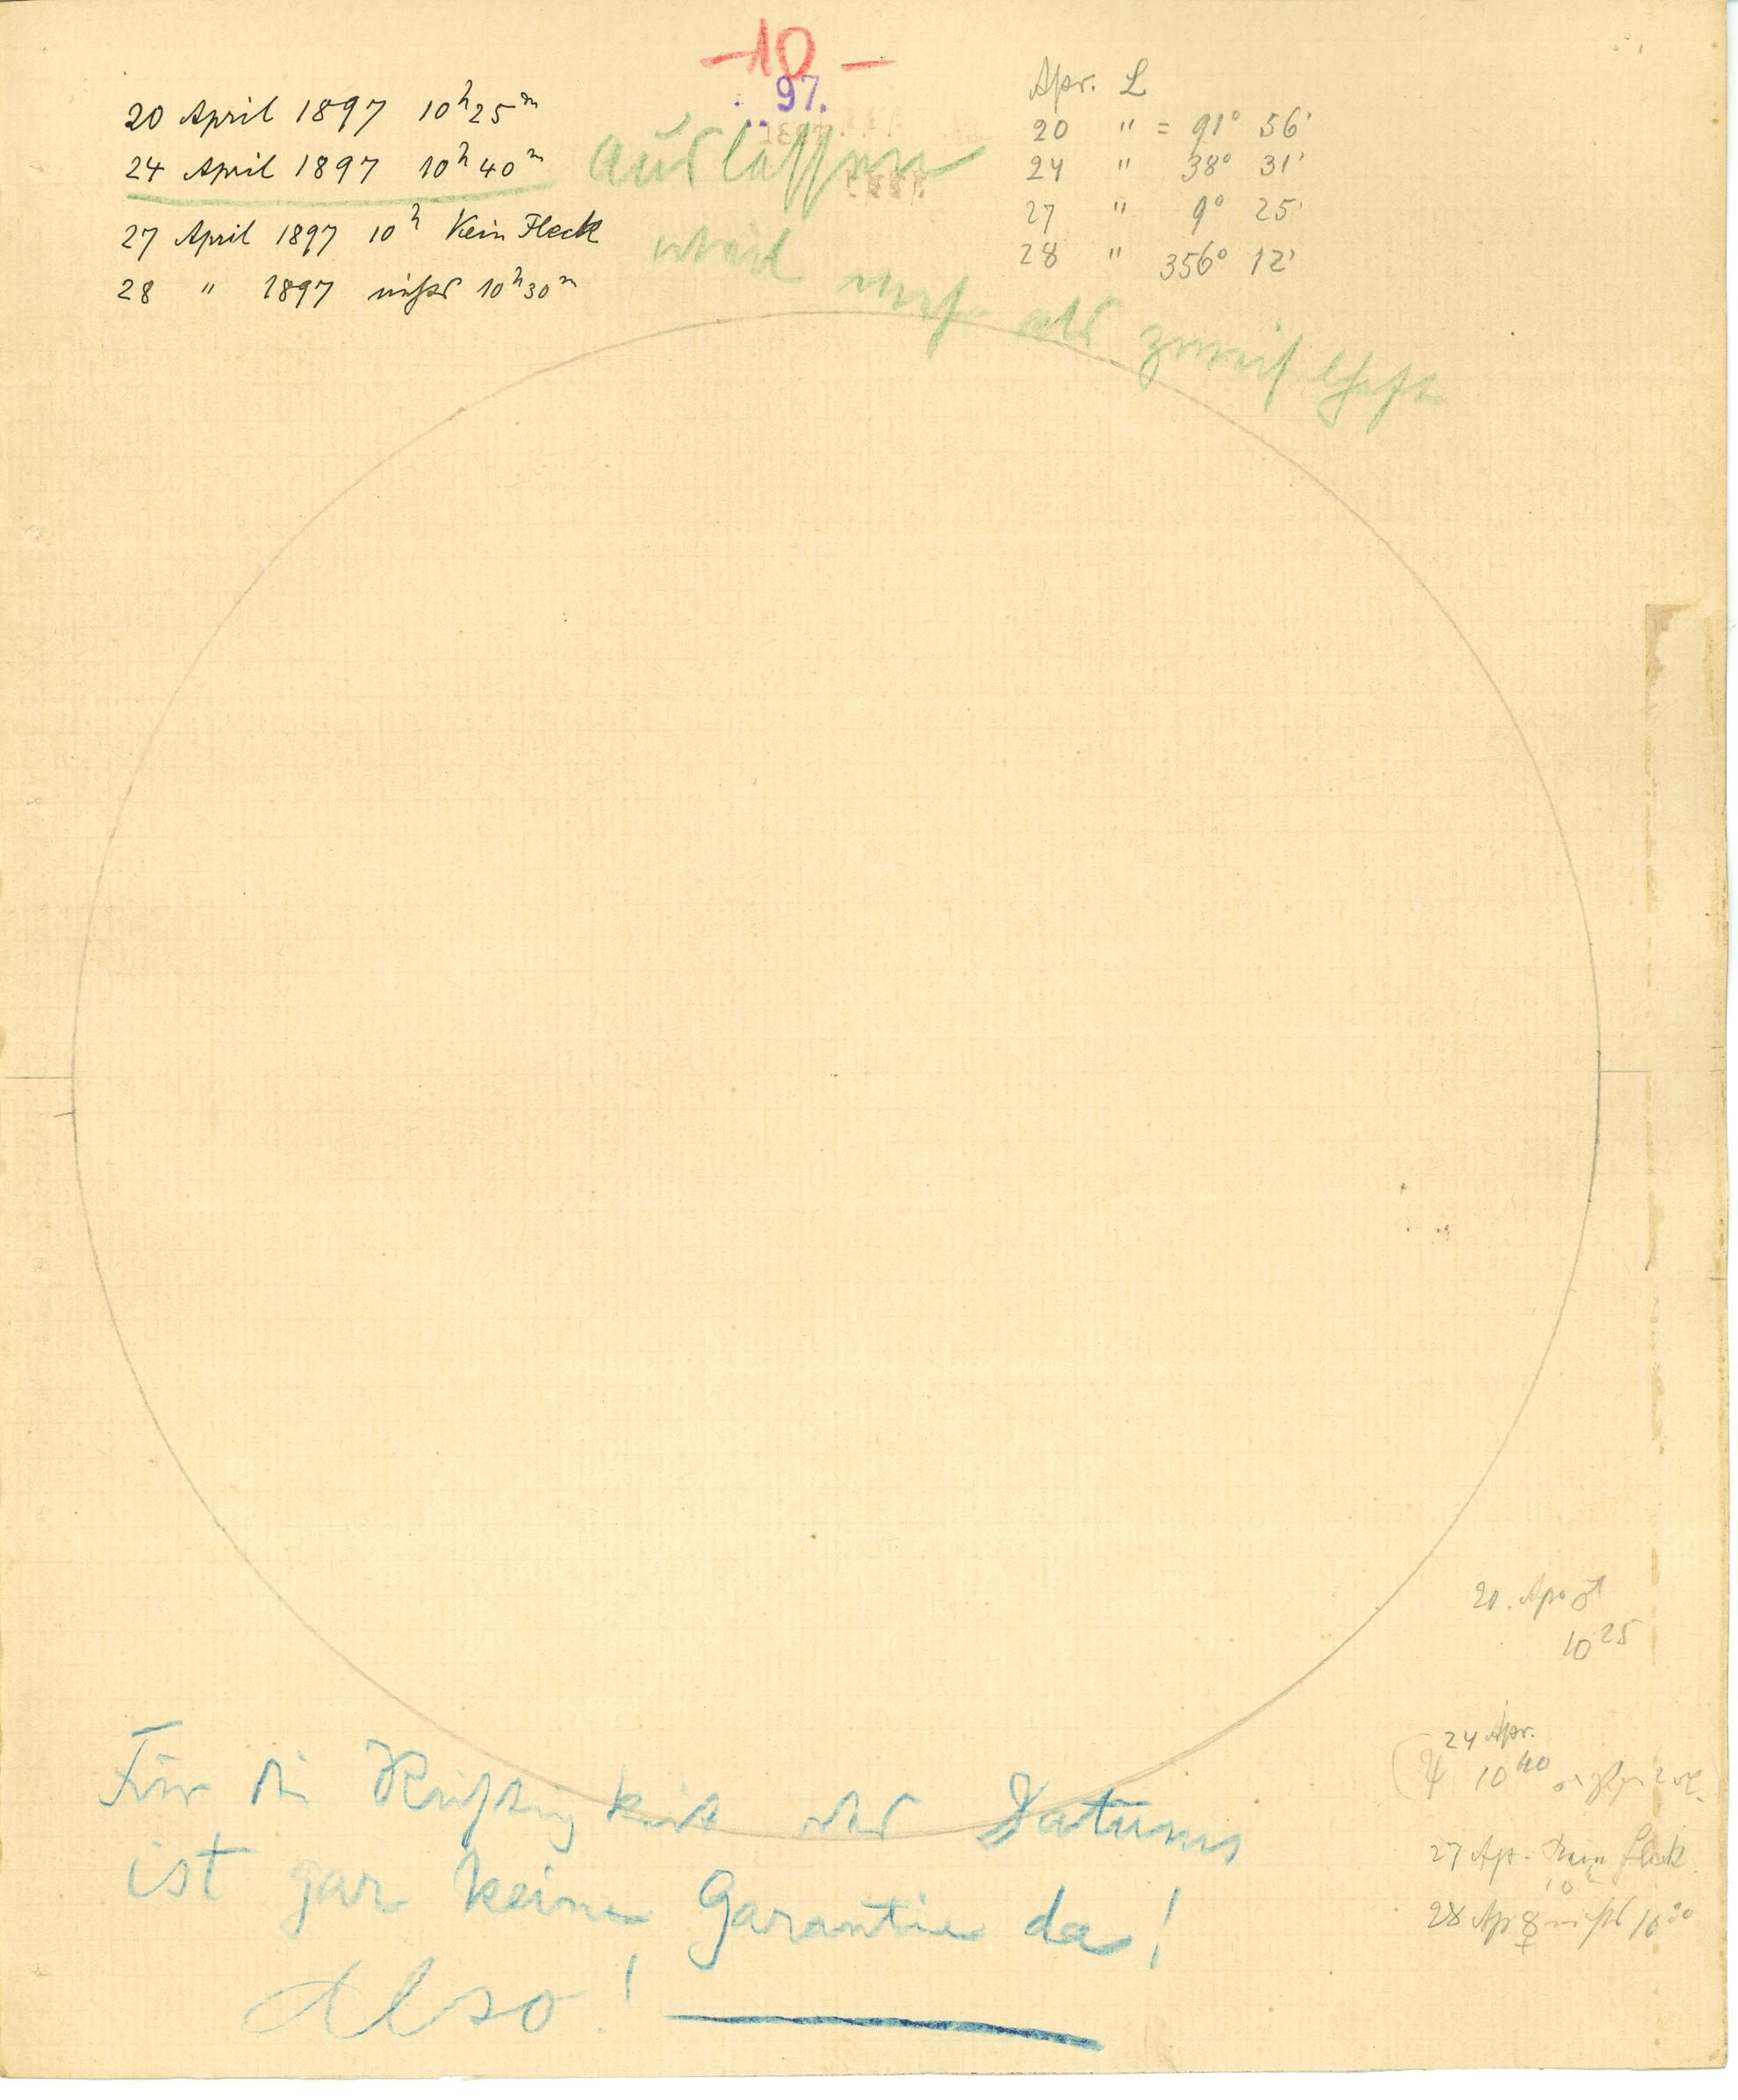 -10-
97.
20 April 1897 10h25m
24 April 1897 10h40m
27 April 1897 10h Kein Fleck
28 " 1897 nichts 10h30m
auslassen
weil mehr als zweifelhaft
Apr. L
20 " = 91° 56'
24 " 38° 31'
27 " 9° 25'
28 " 356° 12'
20. Apr ♂
10 25
24 Apr.
10 40
27 Ap. Kein Fleck
10h
28 Ap ☿ nichts 10 30
Für die Richtigkeit des Datums
ist gar keine Garantie da!
Also!